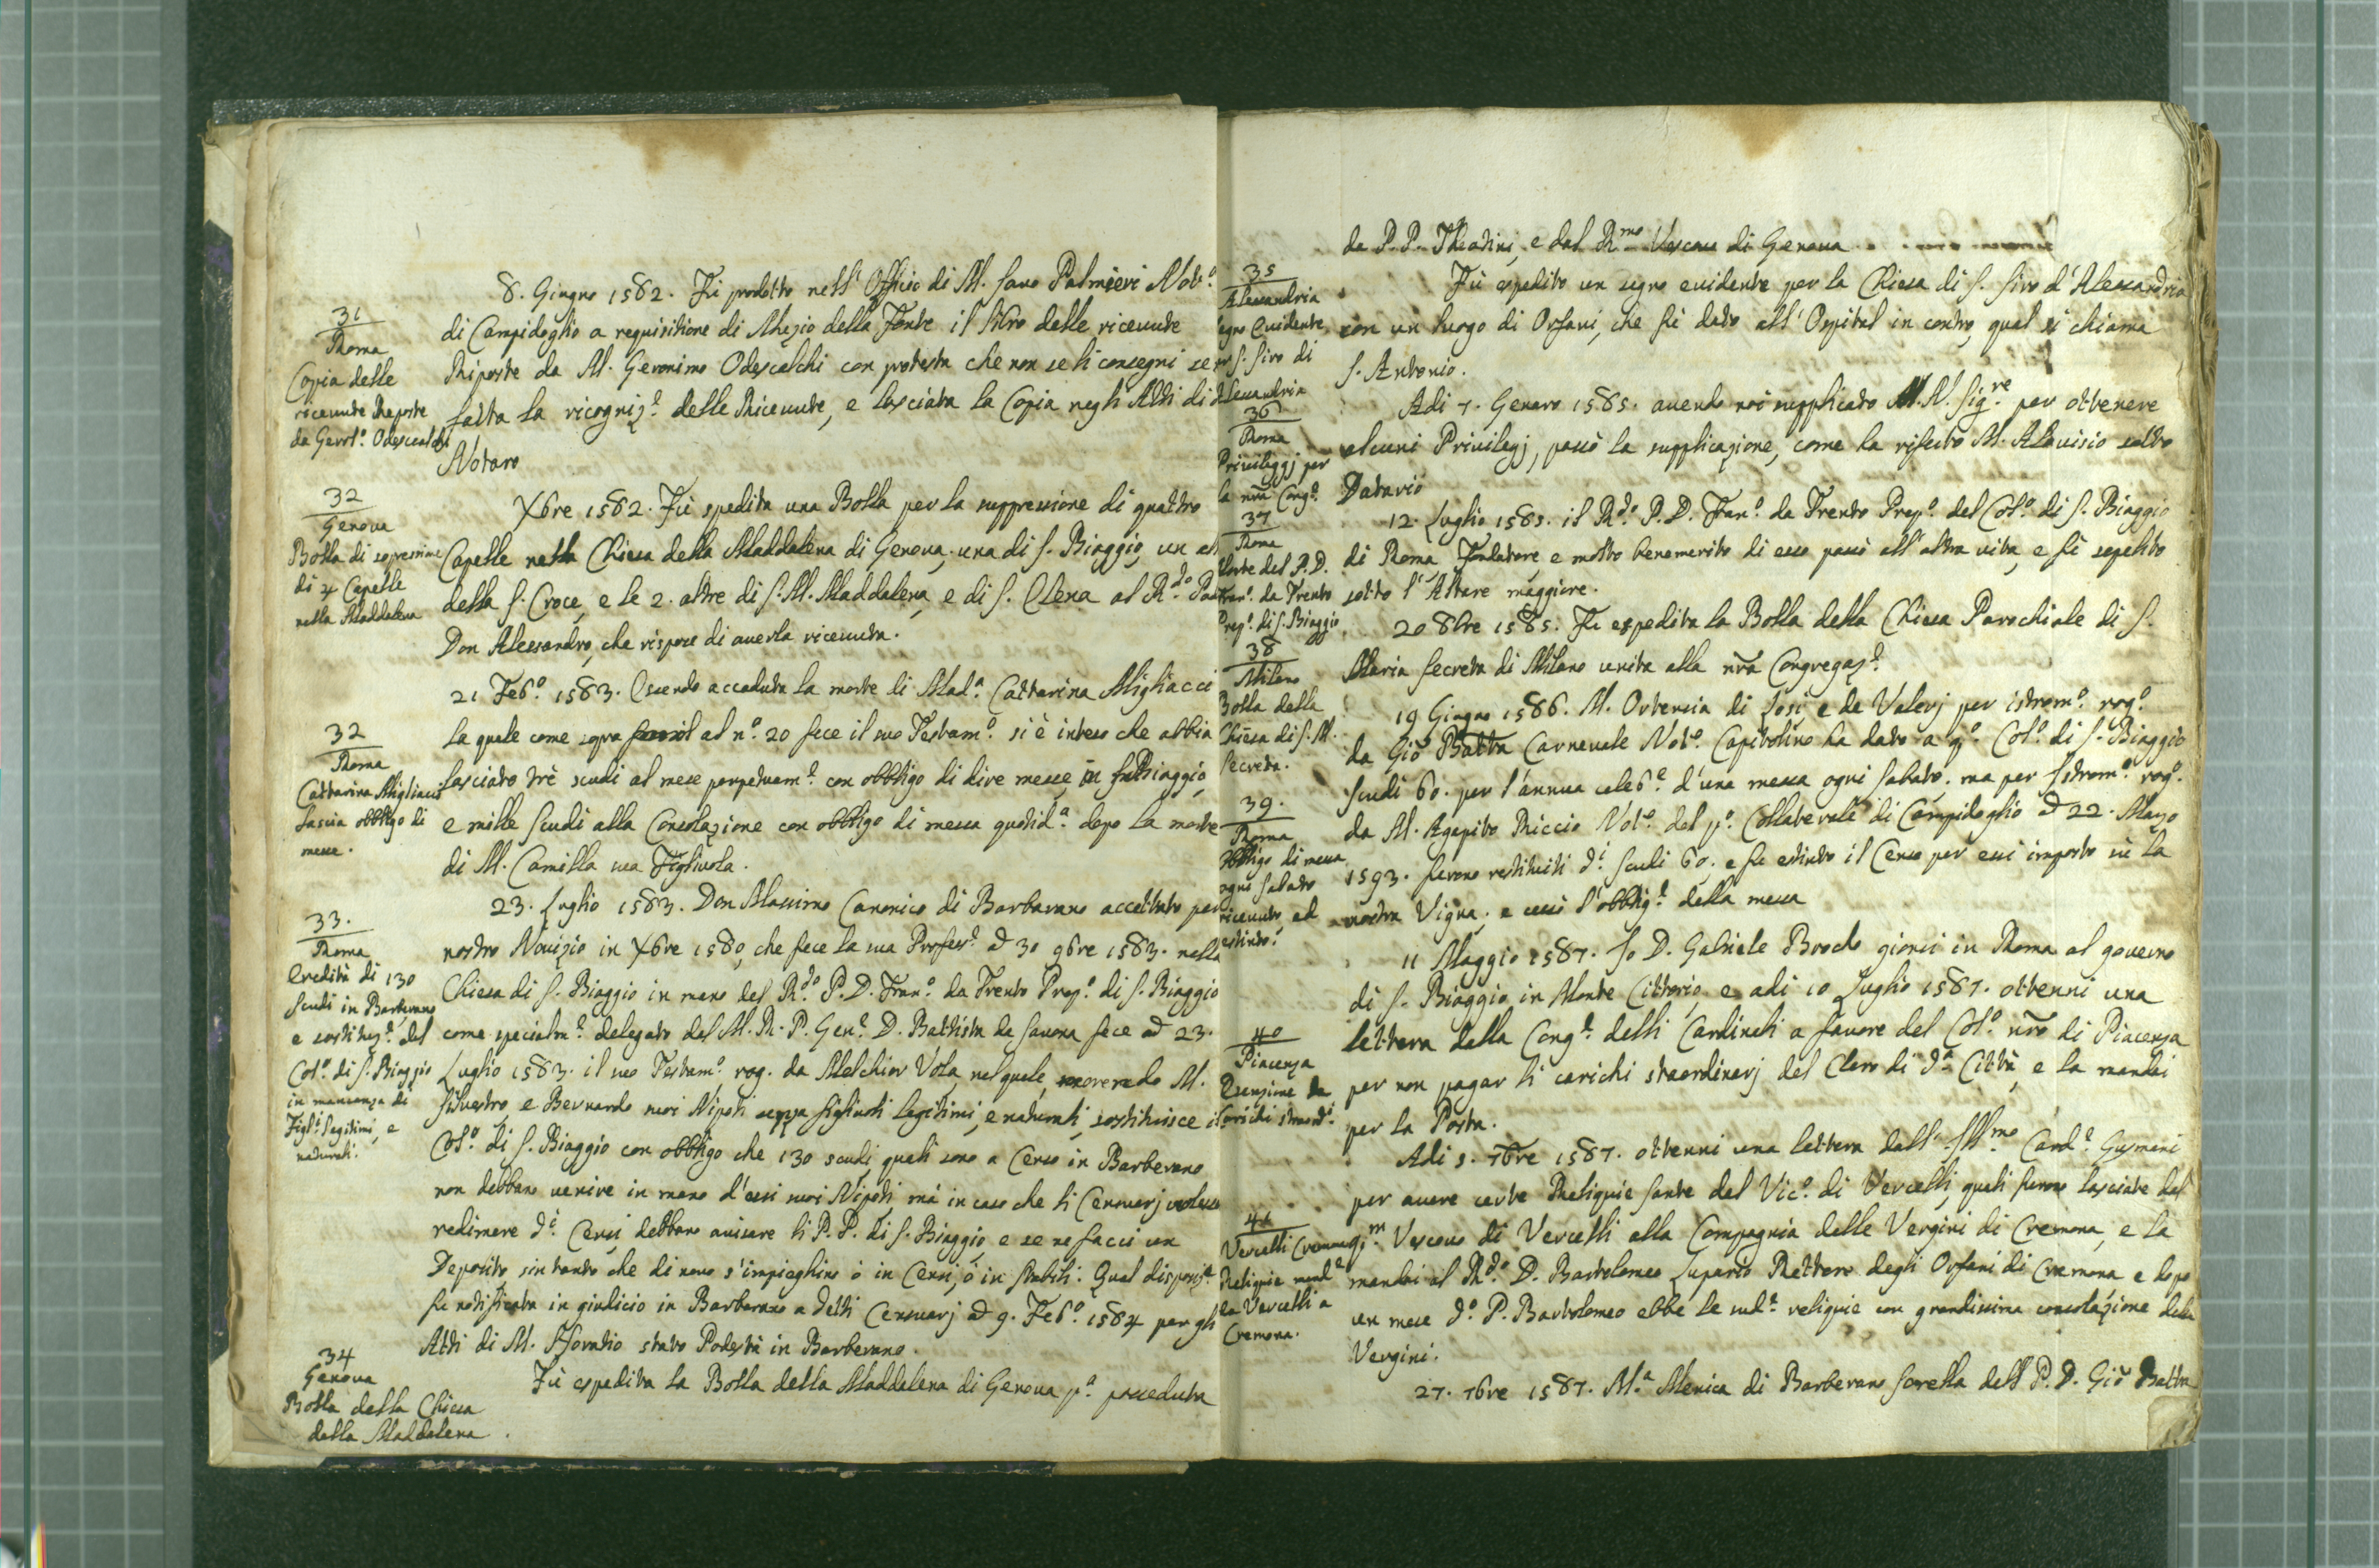 8. Giugno 1582. Fù prodotto nell' Officio di M. Savo Palmieri Not.º
31
Roma
Copia delle
ricevute Reposte
da Gerol.º Odescalchi
di Campidoglio a requisitione di Mezio della Fonte il libro delle ricevute
Riposte da M. Geronimo Odescalchi con protesta che non se li consegni se
fatta la ricogniz.e delle Ricevute, e lasciata la Copia negli Atti di
Notaro
32
Genova
Bolla di sopressione
di 4 Capelle
nella Maddalena
Xbre 1582. Fù spedita una Bolla per la suppressione di quattro
Capelle nella Chiesa della Maddalena di Genova; una di S. Biaggio, un
della S. Croce, e le 2. altre di S. M. Maddalena, e di S. Elena al R.do
Don Alessandro, che rispose di averla ricevuta.
32
Roma
Cattarina Migliacci
lascia obbligo di
messe.
21 Feb.º 1583. Essendo accaduta la morte di Mad.a Cattarina Migliacci
la quale come sopra al n.º 20 fece il suo Testam.º si è inteso che abbia
lasciato trè scudi al mese perpetuam.e con obbligo di dire messe in S. Biaggio,
e mille scudi alla Consolazione con obbligo di messa quotid.a dopo la morte
di M. Camilla sua Figliuola.
33.
Roma
Eredità di 130
scudi in Barberano
e sostituz.e del
Col.º di S. Biaggio
in mancanza di
Figl.i legitimi, e
naturali.
23. Luglio 1583. Don Massimo Canonico di Barbarano accettato per
nostro Novizio in Xbre 1580, che fece la sua Profess.e a 30 9bre 1583. nella
Chiesa di S. Biaggio in mano del R.do P. D. Fran.º da Trento Prep.º di S. Biaggio
come specialm.e delegato dal M. R. P. Gen.e D. Battista da Savona fece a 23.
Luglio 1583. il suo Testam.º rog. da Melchior Vola, nel quale, morendo M.
Silvestro, e Bernardo suoi Nipoti senza figliuoli legitimi, e naturali, sostituisce il
Col.º di S. Biaggio con obbligo che 130 scudi, quali sono a Censo in Barberano
non debbano venire in mano d'essi suoi Nipoti, mà in caso che li Censuarj
redimere d.i Censi debbano avisare li P. P. di S. Biaggio, e se ne facci un
Deposito, sin tanto che di novo s'impieghino ò in Censi, ò in stabili: Qual disposiz.e
fu notificata in giudicio in Barberano a detti Censuarj a 9. Feb.º 1584 per gli
Atti di M. Horatio stato Podestà in Barberano.
34
Genova
Bolla della Chiesa
della Maddalena
Fù espedita la Bolla della Maddalena di Genova p.a posseduta
da P. P. Theatini, e dal R.mo Vescovo di Genova
35
Alessandria
Segno Evidente
S. Siro di
Alessandria
Fù espedito un segno evidente per la Chiesa di S. Siro d'Alessandria
con un luogo di Orfani, che fù dato all' Ospital in contro, qual si chiama
S. Antonio.
36
Roma
Privileggj per
la nr̃a Cong.e
Adi 7. Genaro 1585. avendo noi supplicato M. N. Sig.re per ottenere
alcuni Privilegj, passò la supplicazione, come ha riferito M. Alovisio sotto
Datario
37
Roma
Morte del P. D.
Fran.º da Trento
Prep.º di S. Biaggio
12. Luglio 1585. il R.do P. D. Fran.º da Trento Prep.º del Col.º di S. Biaggio
di Roma, Fondatore e molto benemerito di esso passò all'altra vita, e fù sepelito
sotto l'Altare maggiore.
38
Milano
Bolla della
Chiesa di S. M.
Secreta.
20 8bre 1585. Fu espedita la Bolla della Chiesa Parochiale di S.
Maria Secreta di Milano unita alla nr̃a Congregaz.e
39.
Roma
Obbligo di messa
ogni Sabato
ricevuto, ed
estinto.
19 Giugno 1586. M. Ortensia di e de Valerj per istrom.º rog.º
da Giõ Batta Carnevale Not.º Capitolino ha dato a q.º Col.º di S. Biaggio
scudi 60. per l'annua celeb.e d'una messa ogni Sabato; ma per Istrom.º rog.º
da M. Agapito Riccio Not.º del p.º Collaterale di Campidoglio a 22. Marzo
1593. furono restituiti d.i scudi 60. e fu estinto il Censo per essi imposto sù la
nostra Vigna; e cessò l'obblig.e della messa
11 Maggio 1587. Io D. Gabriele Brocho gionsi in Roma al governo
di S. Biaggio in Monte Cittorio, e adi 10 Luglio 1587. ottenni una
40
Piacenza
Esenzione da
Carichi straord.i
lettera dalla Cong.e delli Cardinali a favore del Col.º nr̃o di Piacenza
per non pagar li carichi straordinarj del Clero di d.a Città, e la mandai
per la Posta.
41
Vercelli Cremona
Reliquie mand.e
da Vercelli a
Cremona.
Adi 5. 7bre 1587. ottenni una lettera dall' Ill.mo Card.e
per avere certe Reliquie sante dal Vic.º di Vercelli, quali furono lasciate dal
q.m Vescovo di Vercelli alla Compagnia delle Vergini di Cremona, e la
mandai al R.do D. Bartolomeo Lupario Rettore degli Orfani di Cremona e dopo
un mese d.º P. Bartolomeo ebbe le sud.e reliquie con grandissima consolazione delle
Vergini.
27. 7bre 1587. M.a Menica di Barberano Sorella dell P. D. Giõ Batta